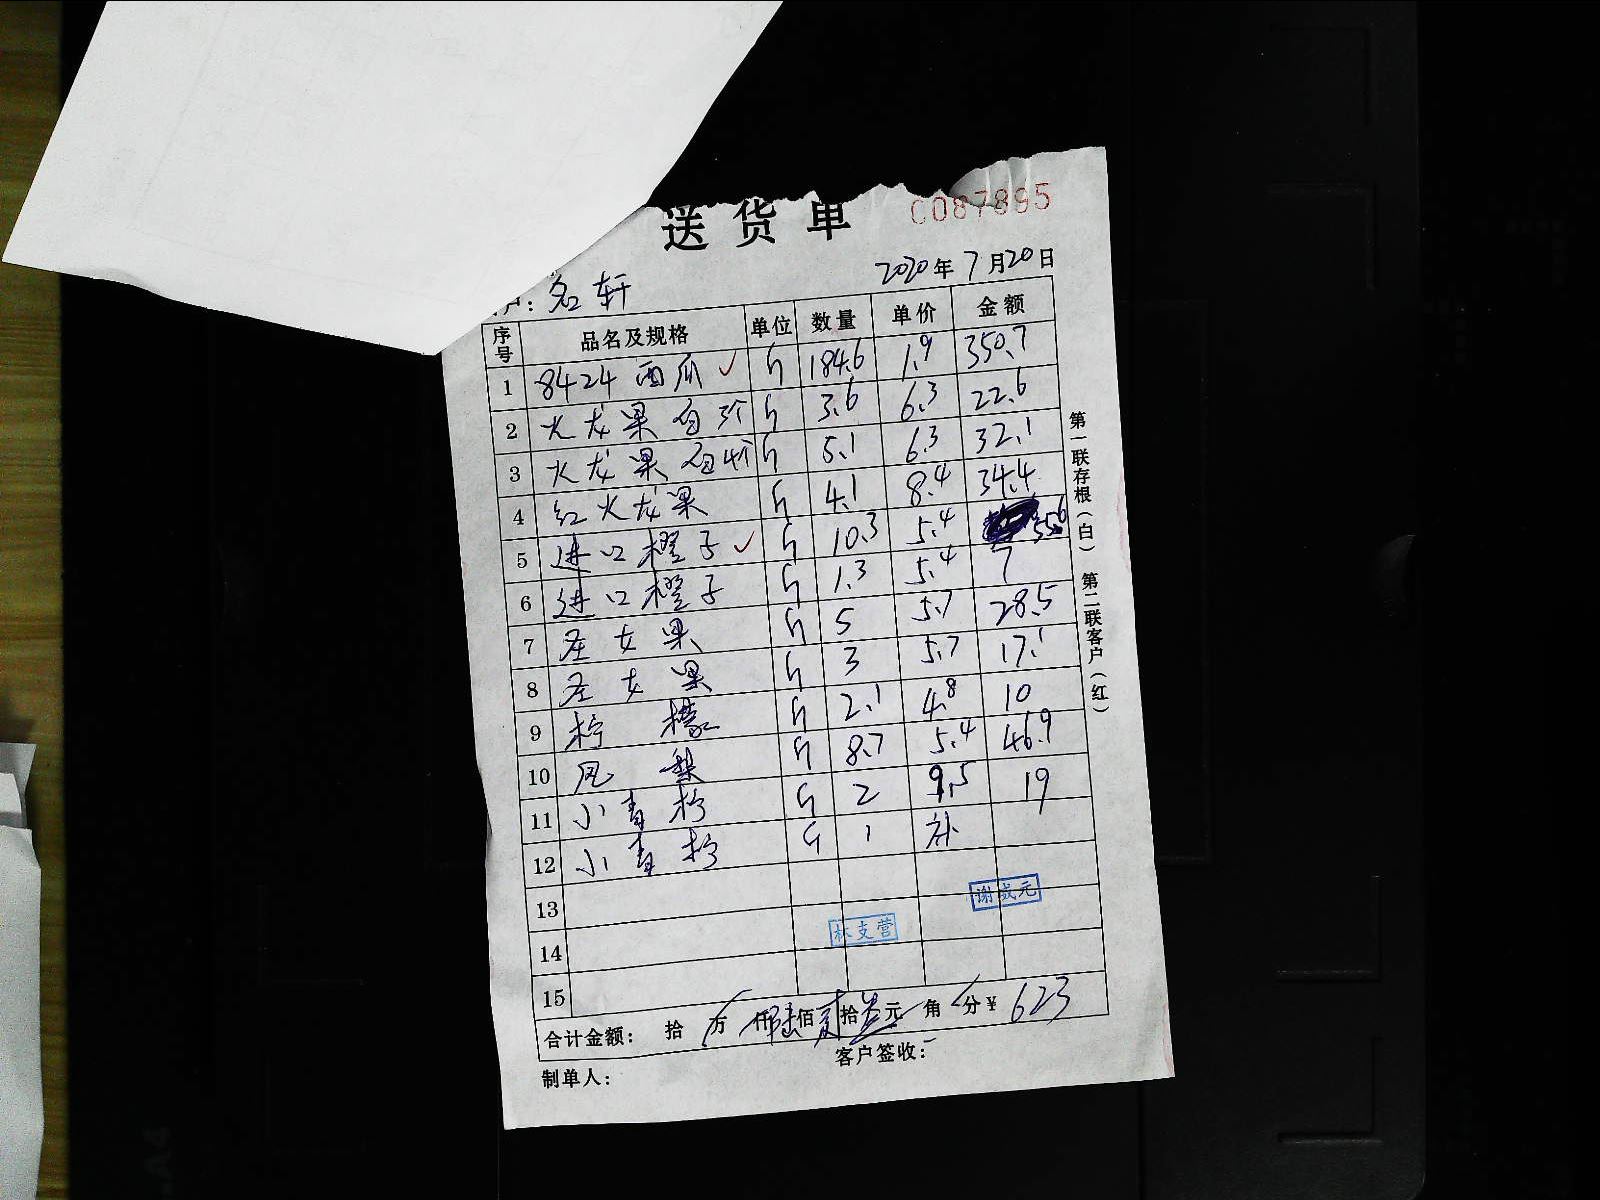 送货单 C087895
户: 名轩 2020年7月20日
序号 品名及规格 单位 数量 单价 金额
1 8424西瓜 ✓ 斤 184.6 1.9 350.7
2 火龙果 斤 3.6 6.3 22.6
3 火龙果 斤 5.1 6.3 32.1
4 红火龙果 斤 4.1 8.4 34.4
5 进口橙子 ✓ 斤 10.3 5.4 55.6
6 进口橙子 斤 1.3 5.4 7
7 圣女果 斤 5 5.7 28.5
8 圣女果 斤 3 5.7 17.1
9 柠檬 斤 2.1 4.8 10
10 凤梨 斤 8.7 5.4 46.9
11 小青柠 斤 2 9.5 19
12 小青柠 斤 1 补
13
14
15
谢成元
林支营
合计金额: 拾 万 仟 陆佰 贰拾 叁元 角 分 ¥ 623
制单人: 客户签收:
第一联存根(白) 第二联客户(红)